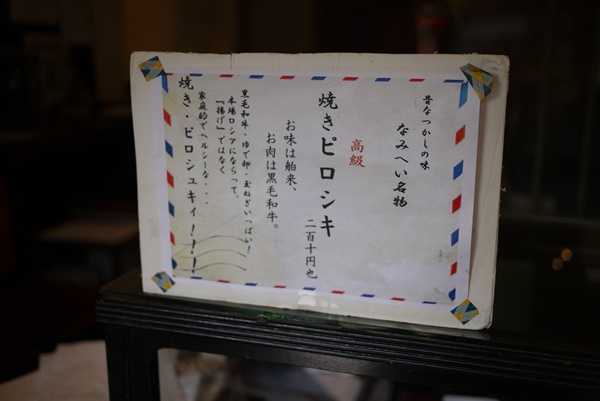 昔なつかしの味
なみへい名物
高級
焼きピロシキ
二百十円也
お味は舶来、
お肉は黒毛和牛。
黒毛和牛・ゆで卵・玉ねぎいっぱい！
本場ロシアにならって、
『揚げ』ではなく
家庭的でヘルシーな・・・
焼き・ピロシュキィ！！！